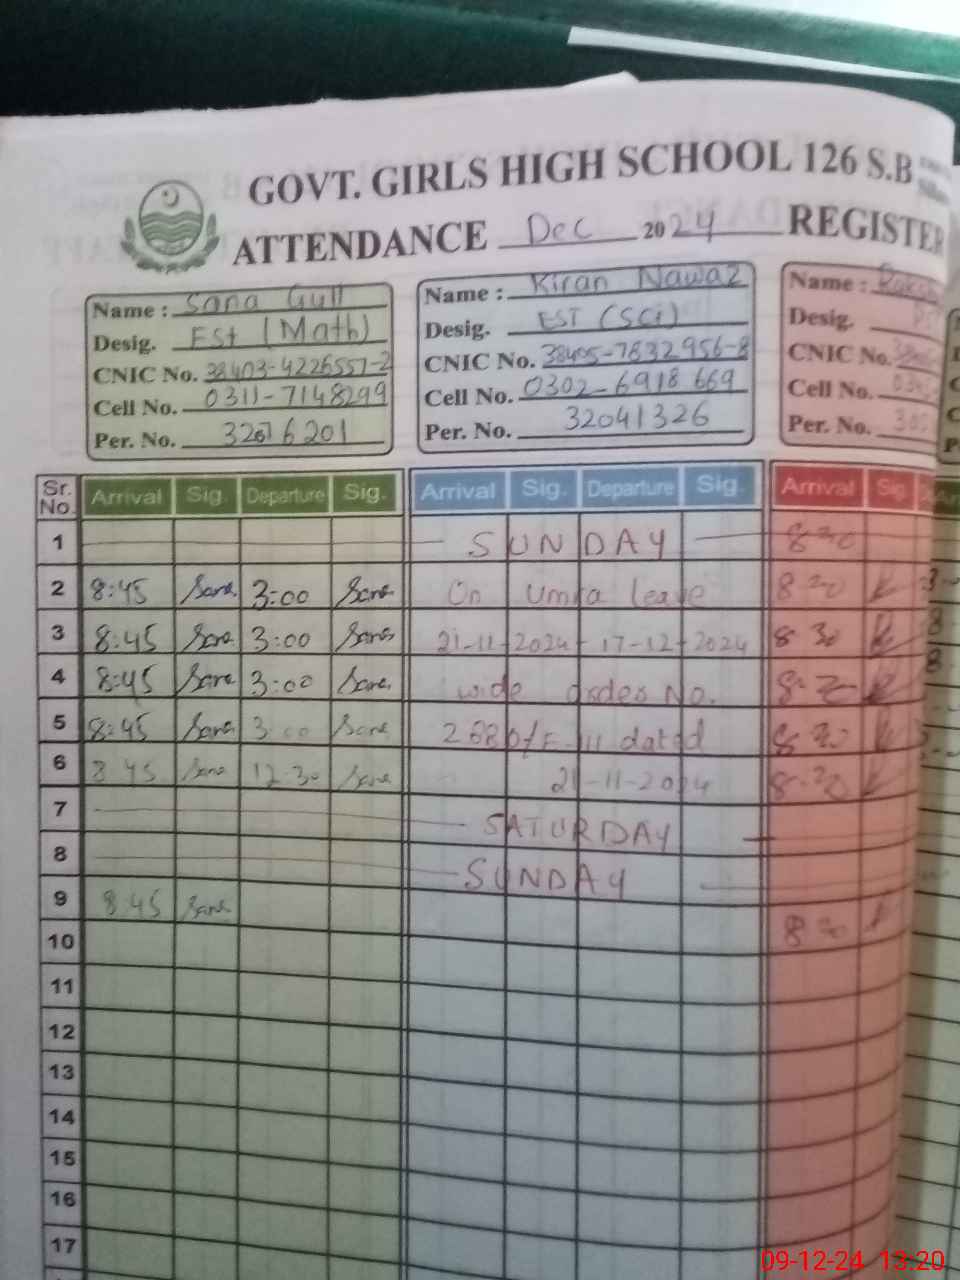 GOVT. GIRLS HIGH SCHOOL 126 S.B
ATTENDANCE Dec 2024 REGISTER
Name : Sana Gull
Desig. Est (Math)
CNIC No. 38403-4226557-2
Cell No. 0311-7148299
Per. No. 32076201
Name : Kiran Nawaz
Desig. EST (Sci)
CNIC No. 38405-7632956-8
Cell No. 0302-6918669
Per. No. 32041326
Name :
Desig.
CNIC No.
Cell No.
Per. No.
Sr. No. Arrival Sig. Departure Sig. Arrival Sig. Departure Sig. Arrival Sig.
1 SUNDAY 8 20
2 8:45 Sana 3:00 Sana On Umra leave 8 20
3 8:45 Sana 3:00 Sana 21-11-2024 - 17-12-2024 8 30
4 8:45 Sana 3:00 Sana wide order No. 8-20
5 8:45 Sana 3:00 Sana 2680/E-III dated 8 20
6 8 45 Sana 12 30 Sana 21-11-2024 8-20
7 SATURDAY
8 SUNDAY
9 8 45 Sana 8 20
10
11
12
13
14
15
16
17
09-12-24 13:20